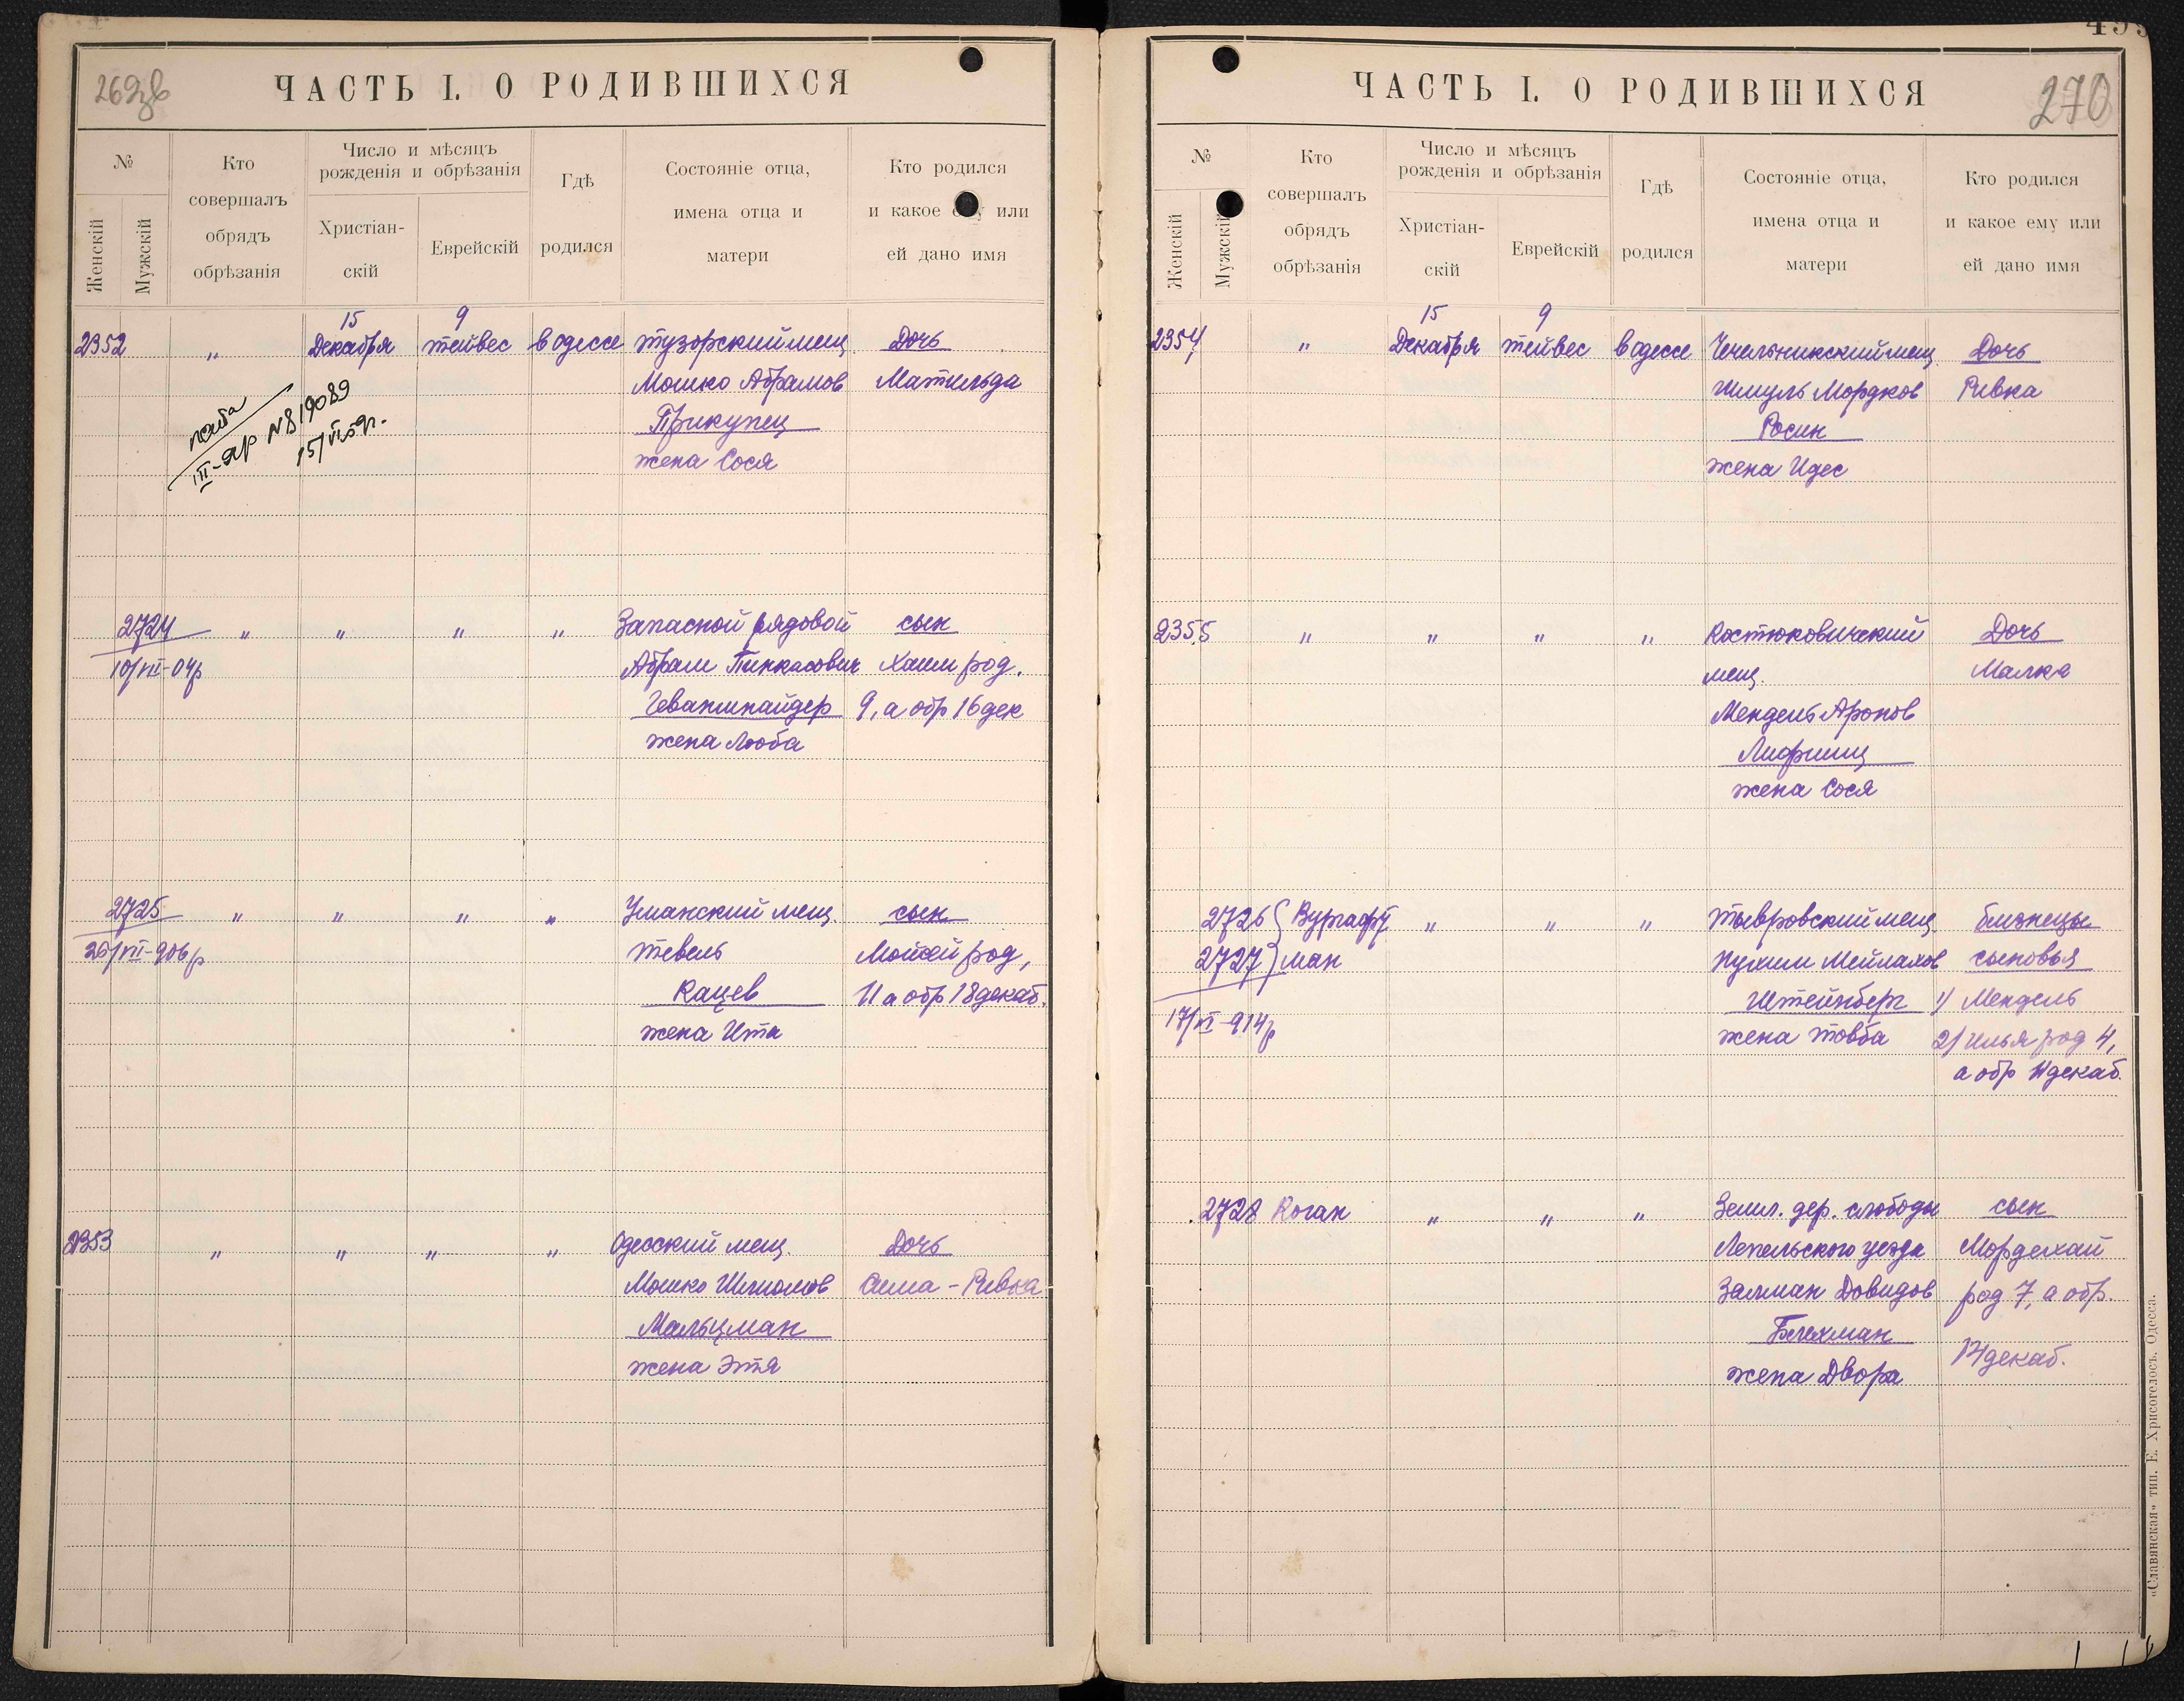 269 об
ЧАСТЬ I. О РОДИВШИХСЯ
№
Женскій
Мужскій
Кто
совершалъ
обрядъ
обрѣзанія
Число и мѣсяцъ
рожденія и обрѣзанія
Христіан-
скій
Еврейскій
Гдѣ
родился
Состояніе отца,
имена отца и
матери
Кто родился
и какое ему или
ей дано имя
15 9
2352 " Декабря тейвес в одессе тузорский мещ Дочь
Мошко Абрамов Матильда
Прикупец
жена Сося
III-ЯР №819089
15/VI 59г.
2724 " " " " Запасной рядовой сын
10/VII-04р Абрам Пинкасович Хаим род.
9, а обр 16 дек
жена Люба
2725 " " " " Уманский мещ сын
26/VII-906р тевель Мойсей род,
Кацев 11 а обр 18 декаб.
жена Ита
2353 " " " " Одесский мещ. Дочь
Мошко Шлиомов Сима-Ривка
Мальцман
жена Этя
ЧАСТЬ I. О РОДИВШИХСЯ
270
№
Женскій
Мужскій
Кто
совершалъ
обрядъ
обрѣзанія
Число и мѣсяцъ
рожденія и обрѣзанія
Христіан-
скій
Еврейскій
Гдѣ
родился
Состояніе отца,
имена отца и
матери
Кто родился
и какое ему или
ей дано имя
15 9
2354 " Декабря тейвес в одессе Чечельникский мещ. Дочь
Шмуль Мордков Ривка
Росин
жена Идес
2355 " " " " Костюковичский Дочь
мещ. Малка
Мендель Аронов
Лифшиц
жена Сося
2726 { Вургафт " " " тывровский мещ. близнецы
2727 } ман Нухим Мейлахов сыновья
Штейнберг 1) Мендель
17/VI-914р жена товба 2) илья род 4,
а обр 11 декаб.
2728 Коган " " " Земл. дер. слободы сын
Лепельского уезда Мордехай
Залман Довидов род 7, а обр.
Блехман 14 декаб.
жена Двора
«Славянская» тип. Е. Хрисогелосъ. Одесса.